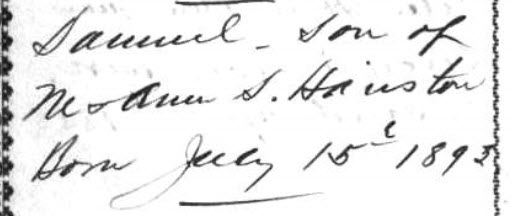 Samuel - Son of
S. Hairston
Born July 15 1893